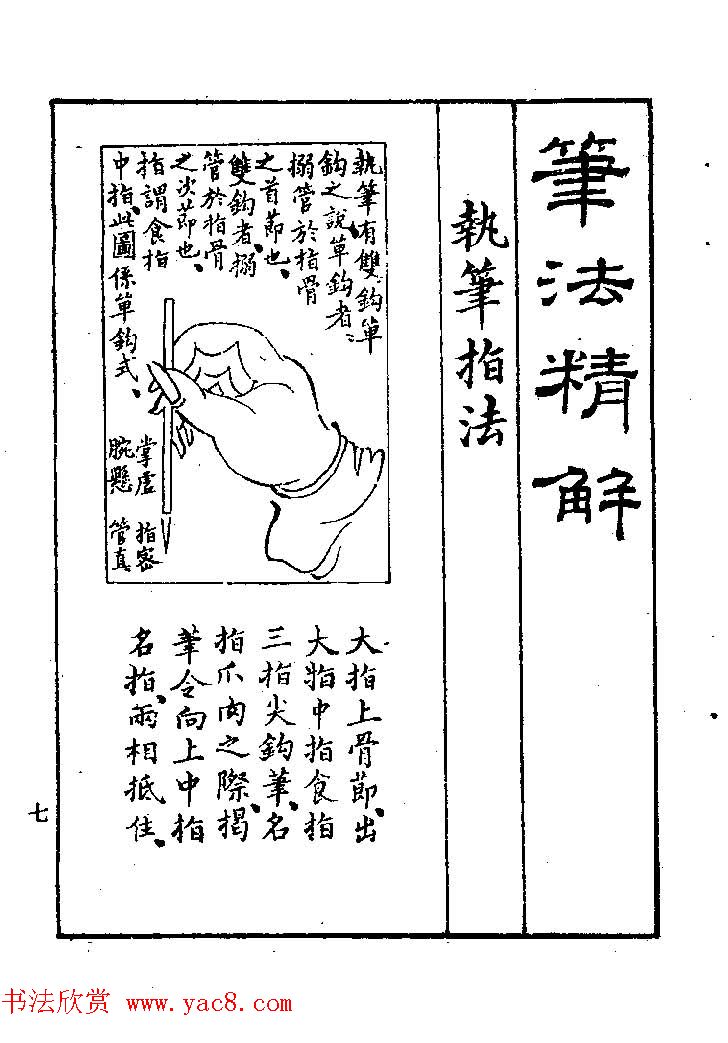 筆法精解
執筆指法
執筆有雙鈎單
鈎之說單鈎者、
搦管於指骨
之首節也、
雙鈎者搦
管於指骨
之次節也、
指謂食指
中指、此圖係單鈎式、
掌虛 指密
腕懸 管直
大指上骨節、出
大指中指食指
三指尖鈎筆、名
指爪肉之際、揭
筆令向上中指
名指、兩相抵住、
七
书法欣赏 www.yac8.com